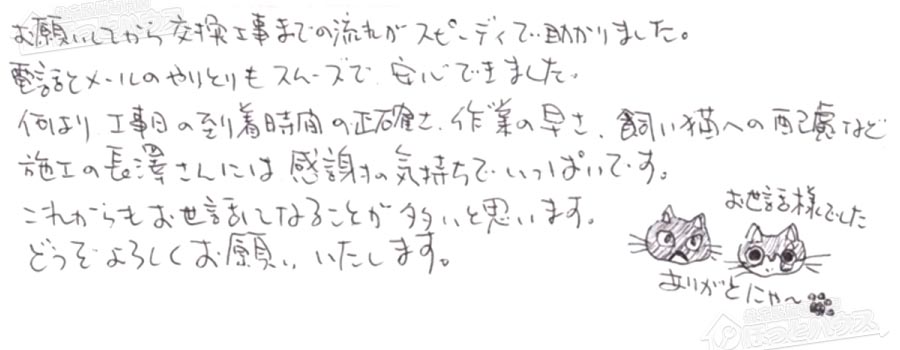 お願いしてから交換工事までの流れがスピーディで助かりました。
電話とメールのやりとりもスムーズで安心できました。
何より工事日の到着時間の正確さ、作業の早さ、飼い猫への配慮など
施工の長澤さんには感謝の気持ちでいっぱいです。
これからもお世話になることが多いと思います。
どうぞよろしくお願いいたします。
お世話様でした
ありがとにゃ〜
ほっとハウス